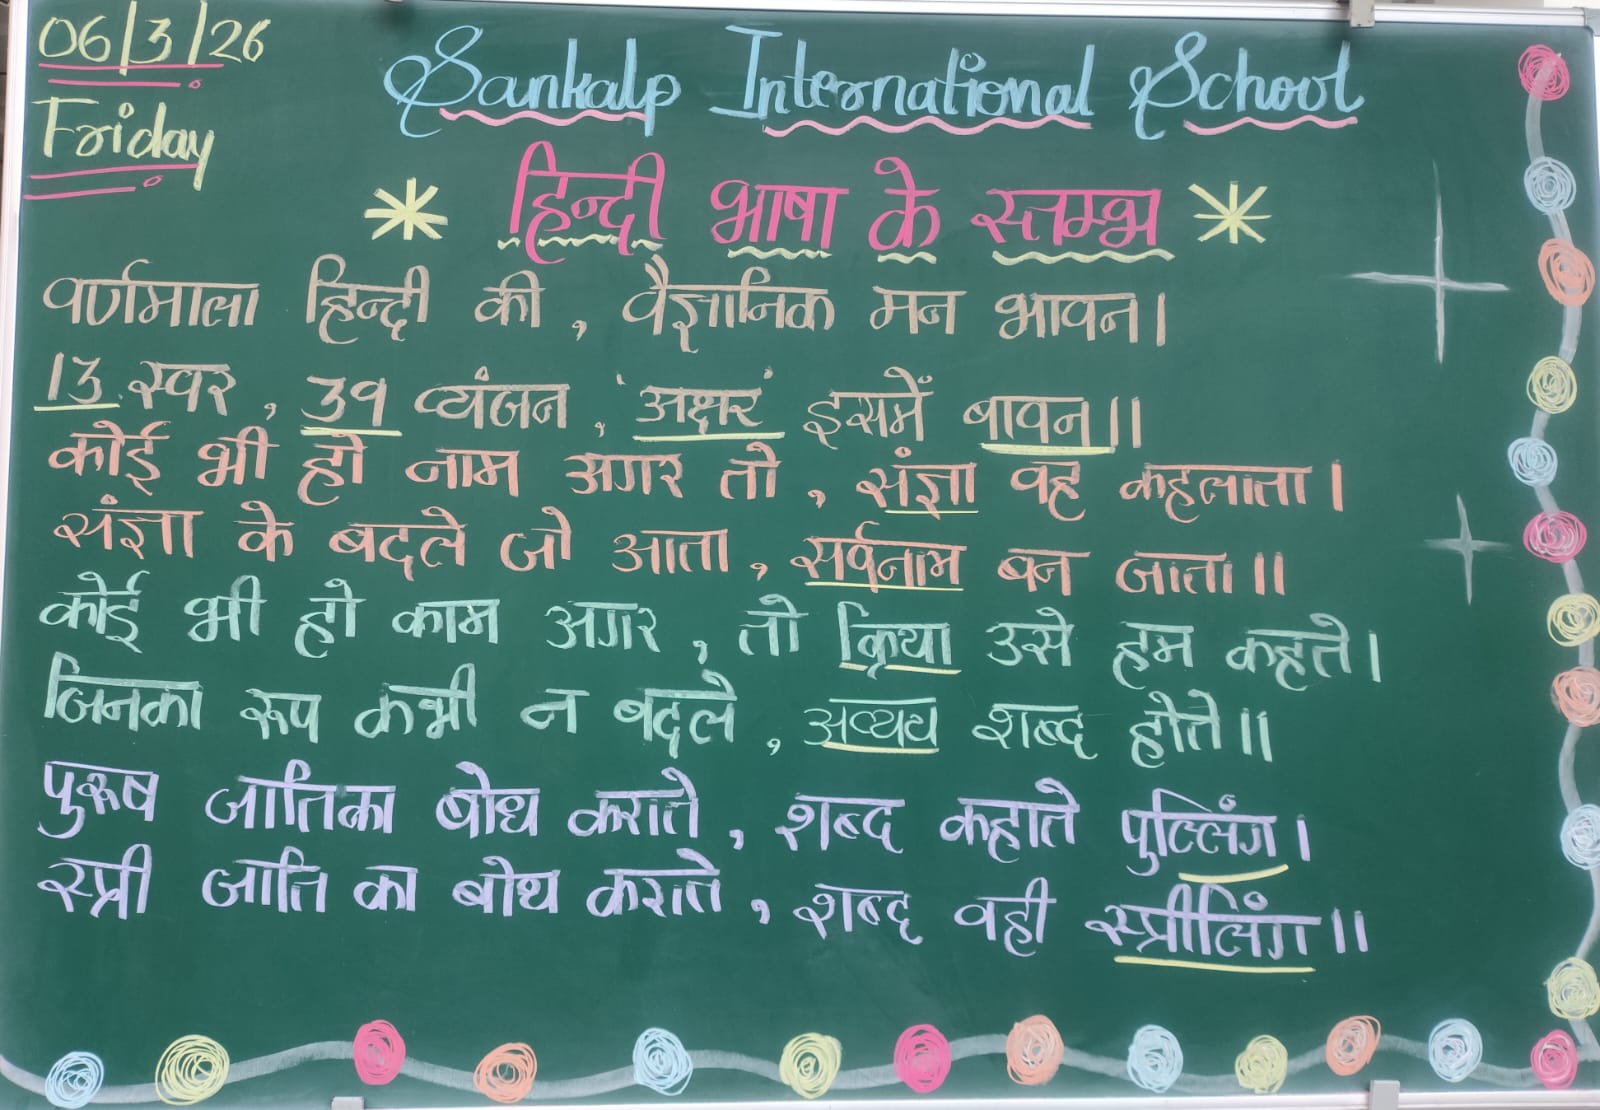 06/3/26
Sankalp International School
Friday
हिन्दी भाषा के स्तम्भ
वर्णमाला हिन्दी की, वैज्ञानिक मन भावन।
13 स्वर, 39 व्यंजन, 'अक्षर' इसमें बावन॥
कोई भी हो नाम अगर तो, संज्ञा वह कहलाता।
संज्ञा के बदले जो आता, सर्वनाम बन जाता॥
कोई भी हो काम अगर, तो क्रिया उसे हम कहते।
जिनका रूप कभी न बदले, अव्यय शब्द होते॥
पुरूष जातिका बोध कराते, शब्द कहाते पुल्लिंग।
स्त्री जाति का बोध कराते, शब्द वही स्त्रीलिंग॥